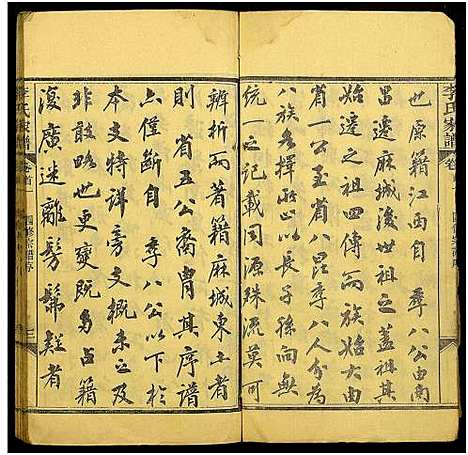 李氏家譜
卷首
也原籍江西自舉八公由南
昌遷麻城後世祖之蓋祖其
始遷之祖四傳而族始大由
省一公至省八昆季八人分為
八族名所出以長子孫向無
統一之記載同源殊流莫可
辨析而著籍麻城東土者
則省五公裔胄其序譜
亦僅斷自季八公以下於
本支特詳旁支概未之及
非敢略也更變既多占籍
復廣迷離髣髴難者
李氏家譜
卷首
四修宗譜序
三